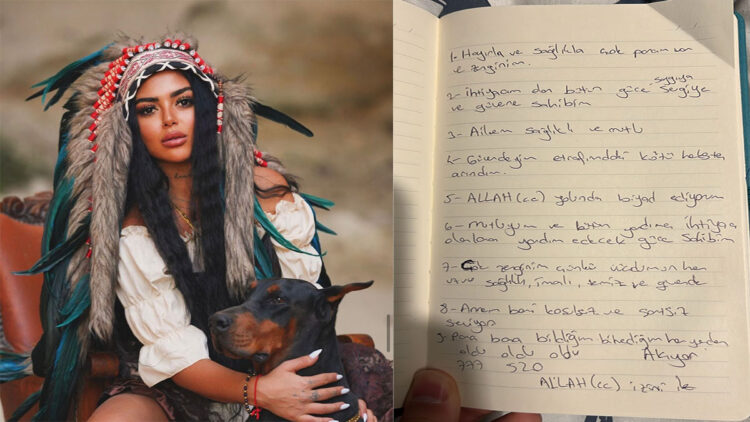 1- Hayırla ve sağlıkla çok param var
ve zenginim.
2- İhtiyacım olan bütün güce sevgiye saygıya
ve güvene sahibim
3- Ailem sağlıklı ve mutlu
4- Güvendeyim etrafımdaki kötü
arındım.
5- ALLAH(cc) yolunda ediyorum
6- Mutluyum ve bütün yardıma ihtiyacı
olanlara yardım edecek güce Sahibim
7- Çok zenginim çünkü vücudumun her
sağlıklı, imanlı, temiz ve güvende
8- Annem beni koşulsuz ve
seviyor
9- Para bana bildiğim bilmediğim her yerden
oldu oldu oldu Akıyor
777 520
ALLAH(cc) izni ile